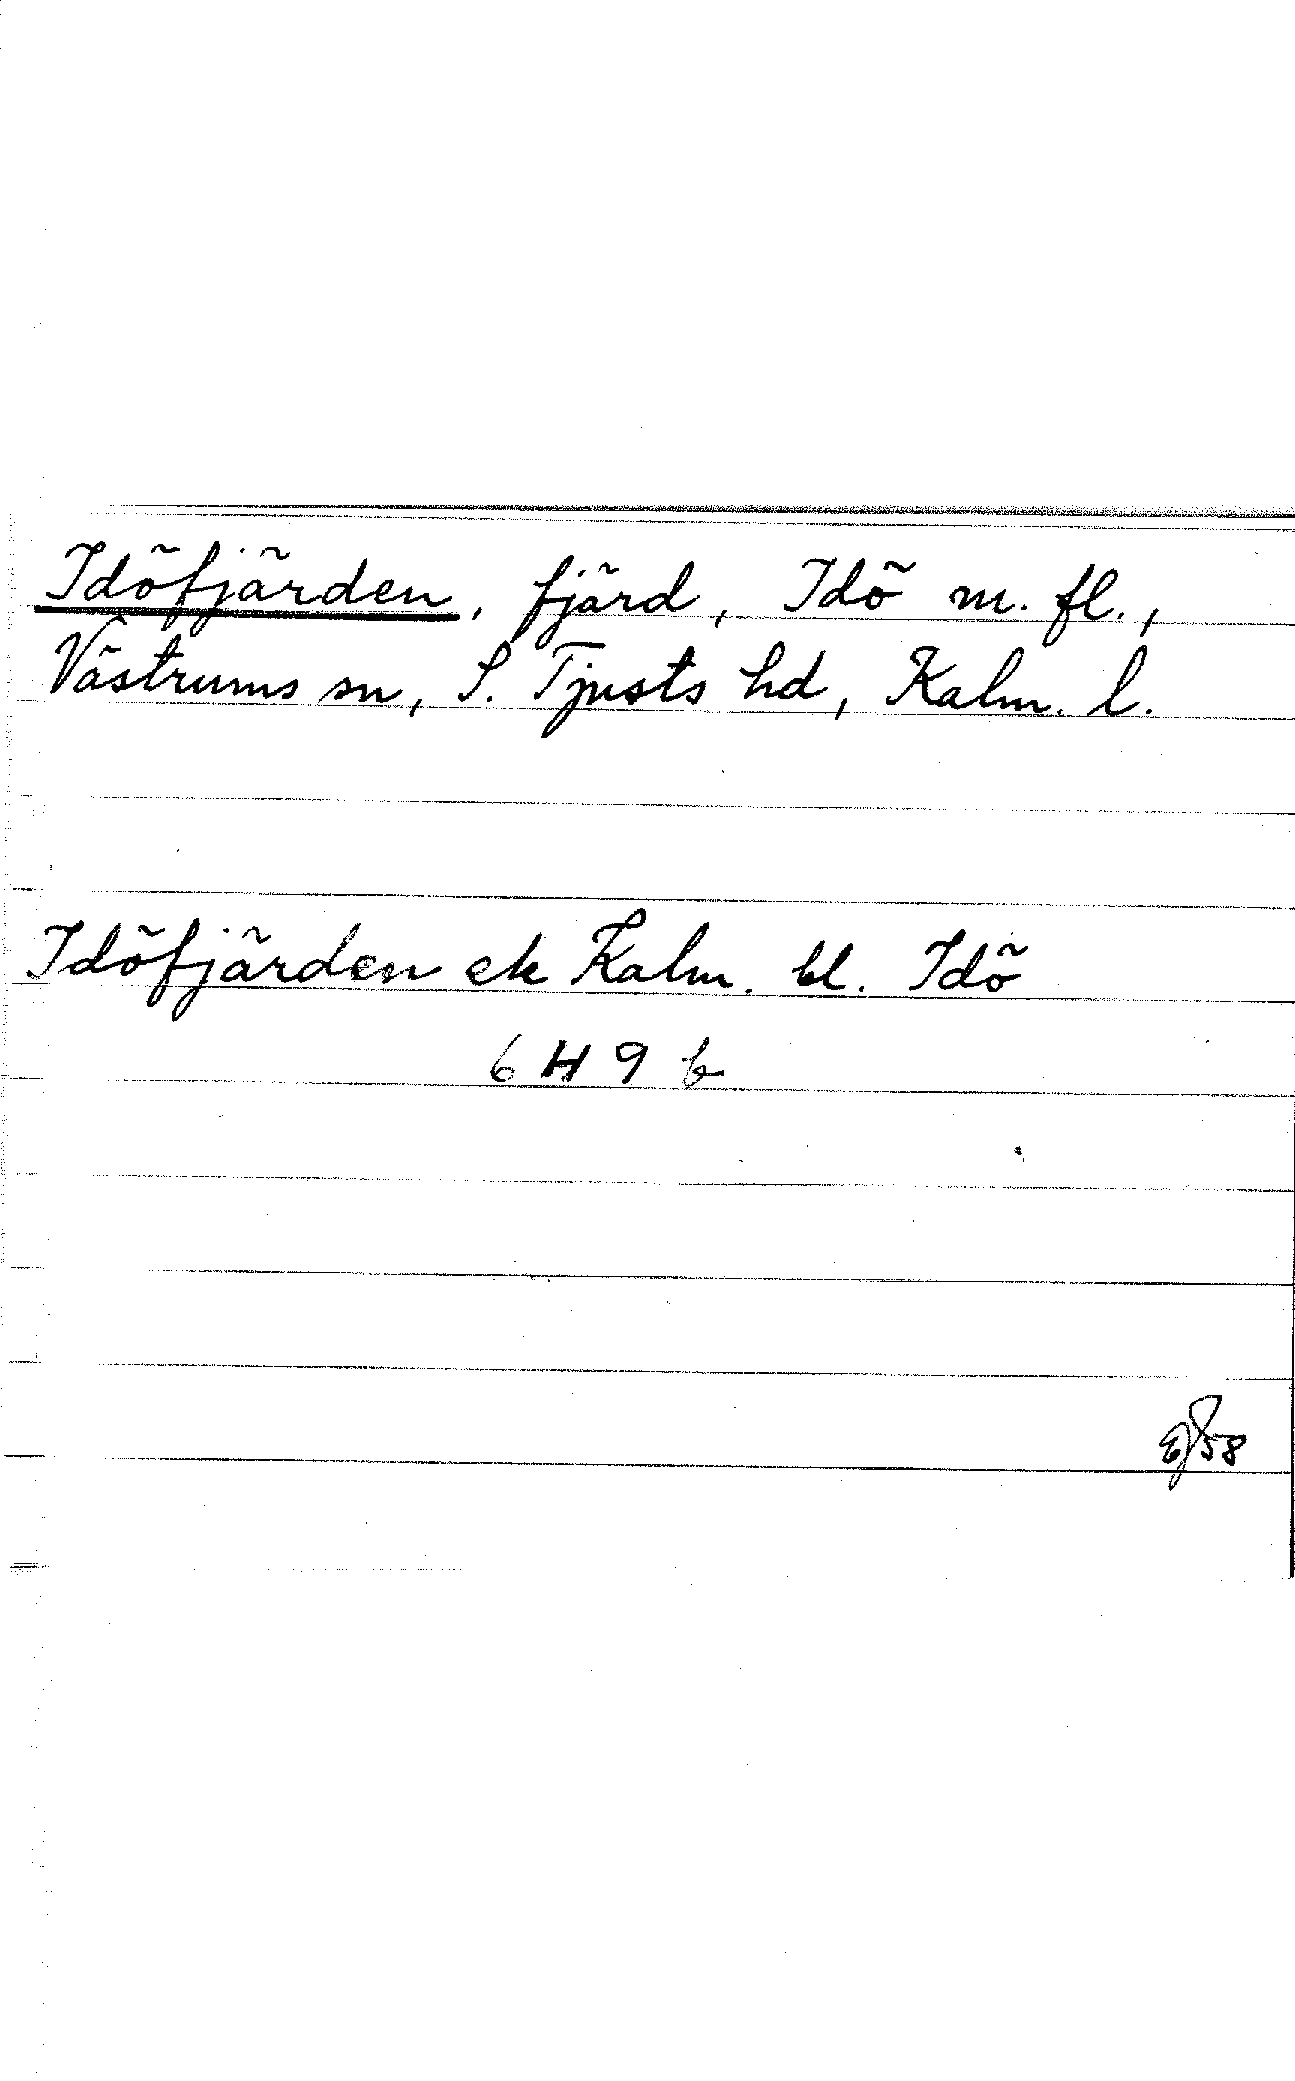 Idöfjärden, fjärd, Idö m. fl.,
Västrums sn, S. Tjusts hd, Kalm. l.
Idöfjärden ek Kalm. bl. Idö
6 H 9 b